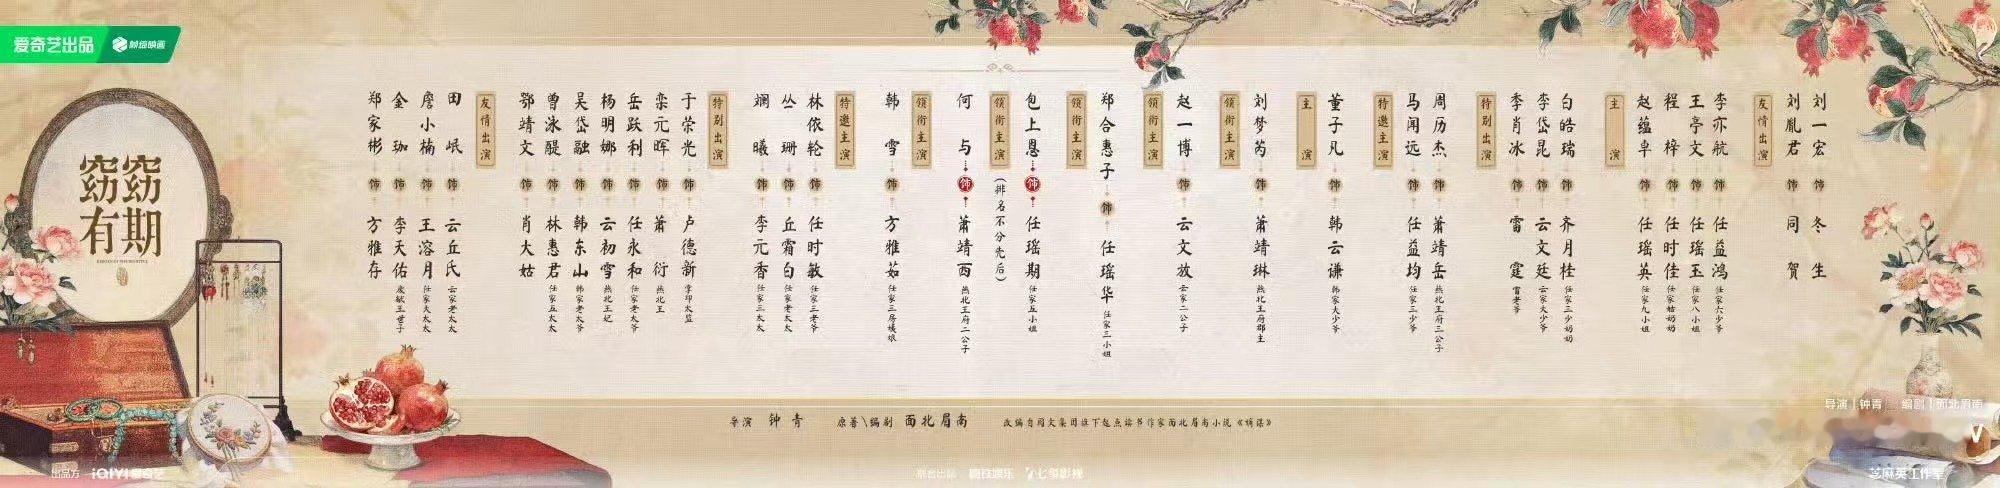 爱奇艺出品
窈窈有期
领衔主演
(排名不分先后)
包上恩 饰 任瑶期 任家五小姐
何与 饰 萧靖西 燕北王府二公子
领衔主演
郑合惠子 饰 任瑶华 任家三小姐
领衔主演
赵一博 饰 云文放 云家二公子
领衔主演
刘梦芮 饰 萧靖琳 燕北王府郡主
主演
董子凡 饰 韩云谦 韩家大少爷
特邀主演
马闻远 饰 任益均 任家三少爷
周历杰 饰 萧靖岳 燕北王府三公子
特别出演
李肖冰 饰 雷霆 雷老爷
李岱昆 饰 云文廷 云家大少爷
白皓瑞 饰 齐月桂 任家三少奶奶
主演
赵蕴卓 饰 任瑶英 任家九小姐
程梓 饰 任时佳 任家姑奶奶
王亭文 饰 任瑶玉 任家八小姐
李亦航 饰 任益鸿 任家六少爷
友情出演
刘胤君 饰 同贺
刘一宏 饰 冬生
领衔主演
韩雪 饰 方雅茹 任家三房姨娘
特邀主演
林依轮 饰 任时敏 任家三老爷
丛珊 饰 丘霜白 任家老太太
斓曦 饰 李元香 任家三太太
特别出演
于荣光 饰 卢德新 掌印太监
栾元晖 饰 萧衍 燕北王
岳跃利 饰 任永和 任家老太爷
杨明娜 饰 云初雪 燕北王妃
吴岱融 饰 韩东山 韩家老太爷
曾泳醍 饰 林惠君 任家五太太
鄂靖文 饰 肖大姑
友情出演
田岷 饰 云丘氏 云家老太太
詹小楠 饰 王溶月 任家大太太
金珈 饰 李天佑 王世子
郑家彬 饰 方雅存
导演 钟青 原著\编剧 面北眉南 改编自阅文集团旗下起点读书作家面北眉南小说《嫡谋》
导演|钟青 编剧|面北眉南
出品方 iQIYI爱奇艺
联合出品 七玺影视
芝麻英工作室